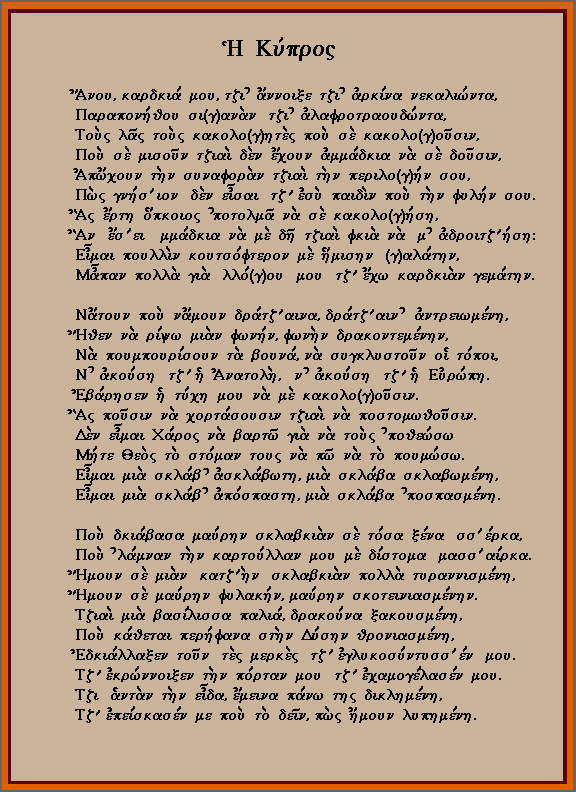 Ἡ Κύπρος
Ἄνου, καρδκιά μου, τζι᾿ ἄννοιξε τζι᾿ ἀρκίνα νεκαλιώντα,
Παραπονήθου σι(γ)ανὰν τζι᾿ ἀλαφροτραουδώντα,
Τοὺς λᾶς τοὺς κακολο(γ)ητὲς ποὺ σὲ κακολο(γ)οῦσιν,
Ποὺ σὲ μισοῦν τζιαὶ δὲν ἔχουν ἀμμάδκια νὰ σὲ δοῦσιν,
Ἀπὤχουν τὴν συναφορὰν τζιαὶ τὴν περιλο(γ)ήν σου,
Πὼς γνήσ᾿ιον δὲν εἶσαι τζ᾿ ἐσὺ παιδὶν ποὺ τὴν φυλήν σου.
Ἂς ἔρτη ὅπκοιος ᾿ποτολμᾶ νὰ σὲ κακολο(γ)ήση,
Ἂν ἔσ᾿ει μμάδκια νὰ μὲ δῆ τζιαὶ φκιὰ νὰ μ᾿ ἀδροιτζ᾿ήση:
Εἶμαι πουλλὶν κουτσόφτερον μὲ ἥμισην (γ)αλάτην,
Μἆπαν πολλὰ γιὰ λλό(γ)ου μου τζ᾿ ἔχω καρδκιὰν γεμάτην.

Νἄτουν ποὺ νἄμουν δράτζ᾿αινα, δράτζ᾿αιν᾿ ἀντρειωμένη,
Ἤθεν νὰ ρίψω μιὰν φωνήν, φωνὴν δρακοντεμένην,
Νὰ πουμπουρίσουν τὰ βουνά, νὰ συγκλυστοῦν οἱ τόποι,
Ν᾿ ἀκούση τζ᾿ ἡ Ἀνατολὴ, ν᾿ ἀκούση τζ᾿ ἡ Εὐρώπη.
Ἐβάρησεν ἡ τύχη μου νὰ μὲ κακολο(γ)οῦσιν.
Ἂς ποῦσιν νὰ χορτάσουσιν τζιαὶ νὰ ποστομωθοῦσιν.
Δὲν εἶμαι Χάρος νὰ βαρτῶ γιὰ νὰ τοὺς ᾿ποθεώσω
Μήτε Θεὸς τὸ στόμαν τους νὰ πῶ νὰ τὸ πουμώσω.
Εἶμαι μιὰ σκλάβ᾿ ἀσκλάβωτη, μιὰ σκλάβα σκλαβωμένη,
Εἶμαι μιὰ σκλάβ᾿ ἀπόσπαστη, μιὰ σκλάβα ᾿ποσπασμένη.

Ποὺ δκιάβασα μαύρην σκλαβκιὰν σὲ τόσα ξένα σσ᾿έρκα,
Ποὺ ᾿λάμναν τὴν καρτούλλαν μου μὲ δίστομα μασσ᾿αίρκα.
Ἤμουν σὲ μιὰν κατζ᾿ὴν σκλαβκιὰν πολλὰ τυραννισμένη,
Ἤμουν σὲ μαύρην φυλακήν, μαύρην σκοτεινιασμένην.
Τζιαὶ μιὰ βασίλισσα παλιά, δρακούνα ξακουσμένη,
Ποὺ κάθεται περήφανα στὴν Δύσην θρονιασμένη,
Ἐδκιάλλαξεν τοῦν τὲς μερκὲς τζ᾿ ἐγλυκοσύντυσσ᾿έν μου.
Τζ᾿ ἐκρώννοιξεν τὴν πόρταν μου τζ᾿ ἐχαμογέλασέν μου.
Τζι ἁντὰν τὴν εἶδα, ἔμεινα πάνω της δικλημένη,
Τζ᾿ ἐπείσκασέν με ποὺ τὸ δεῖν, πὼς ἤμουν λυπημένη.